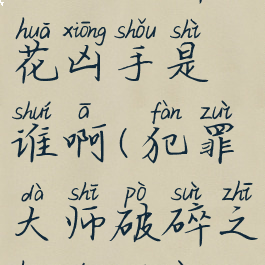 huā xiōng shǒu shì
花凶手是
shuí ā fàn zuì
谁啊(犯罪
dà shī pò suì zhī
大师破碎之